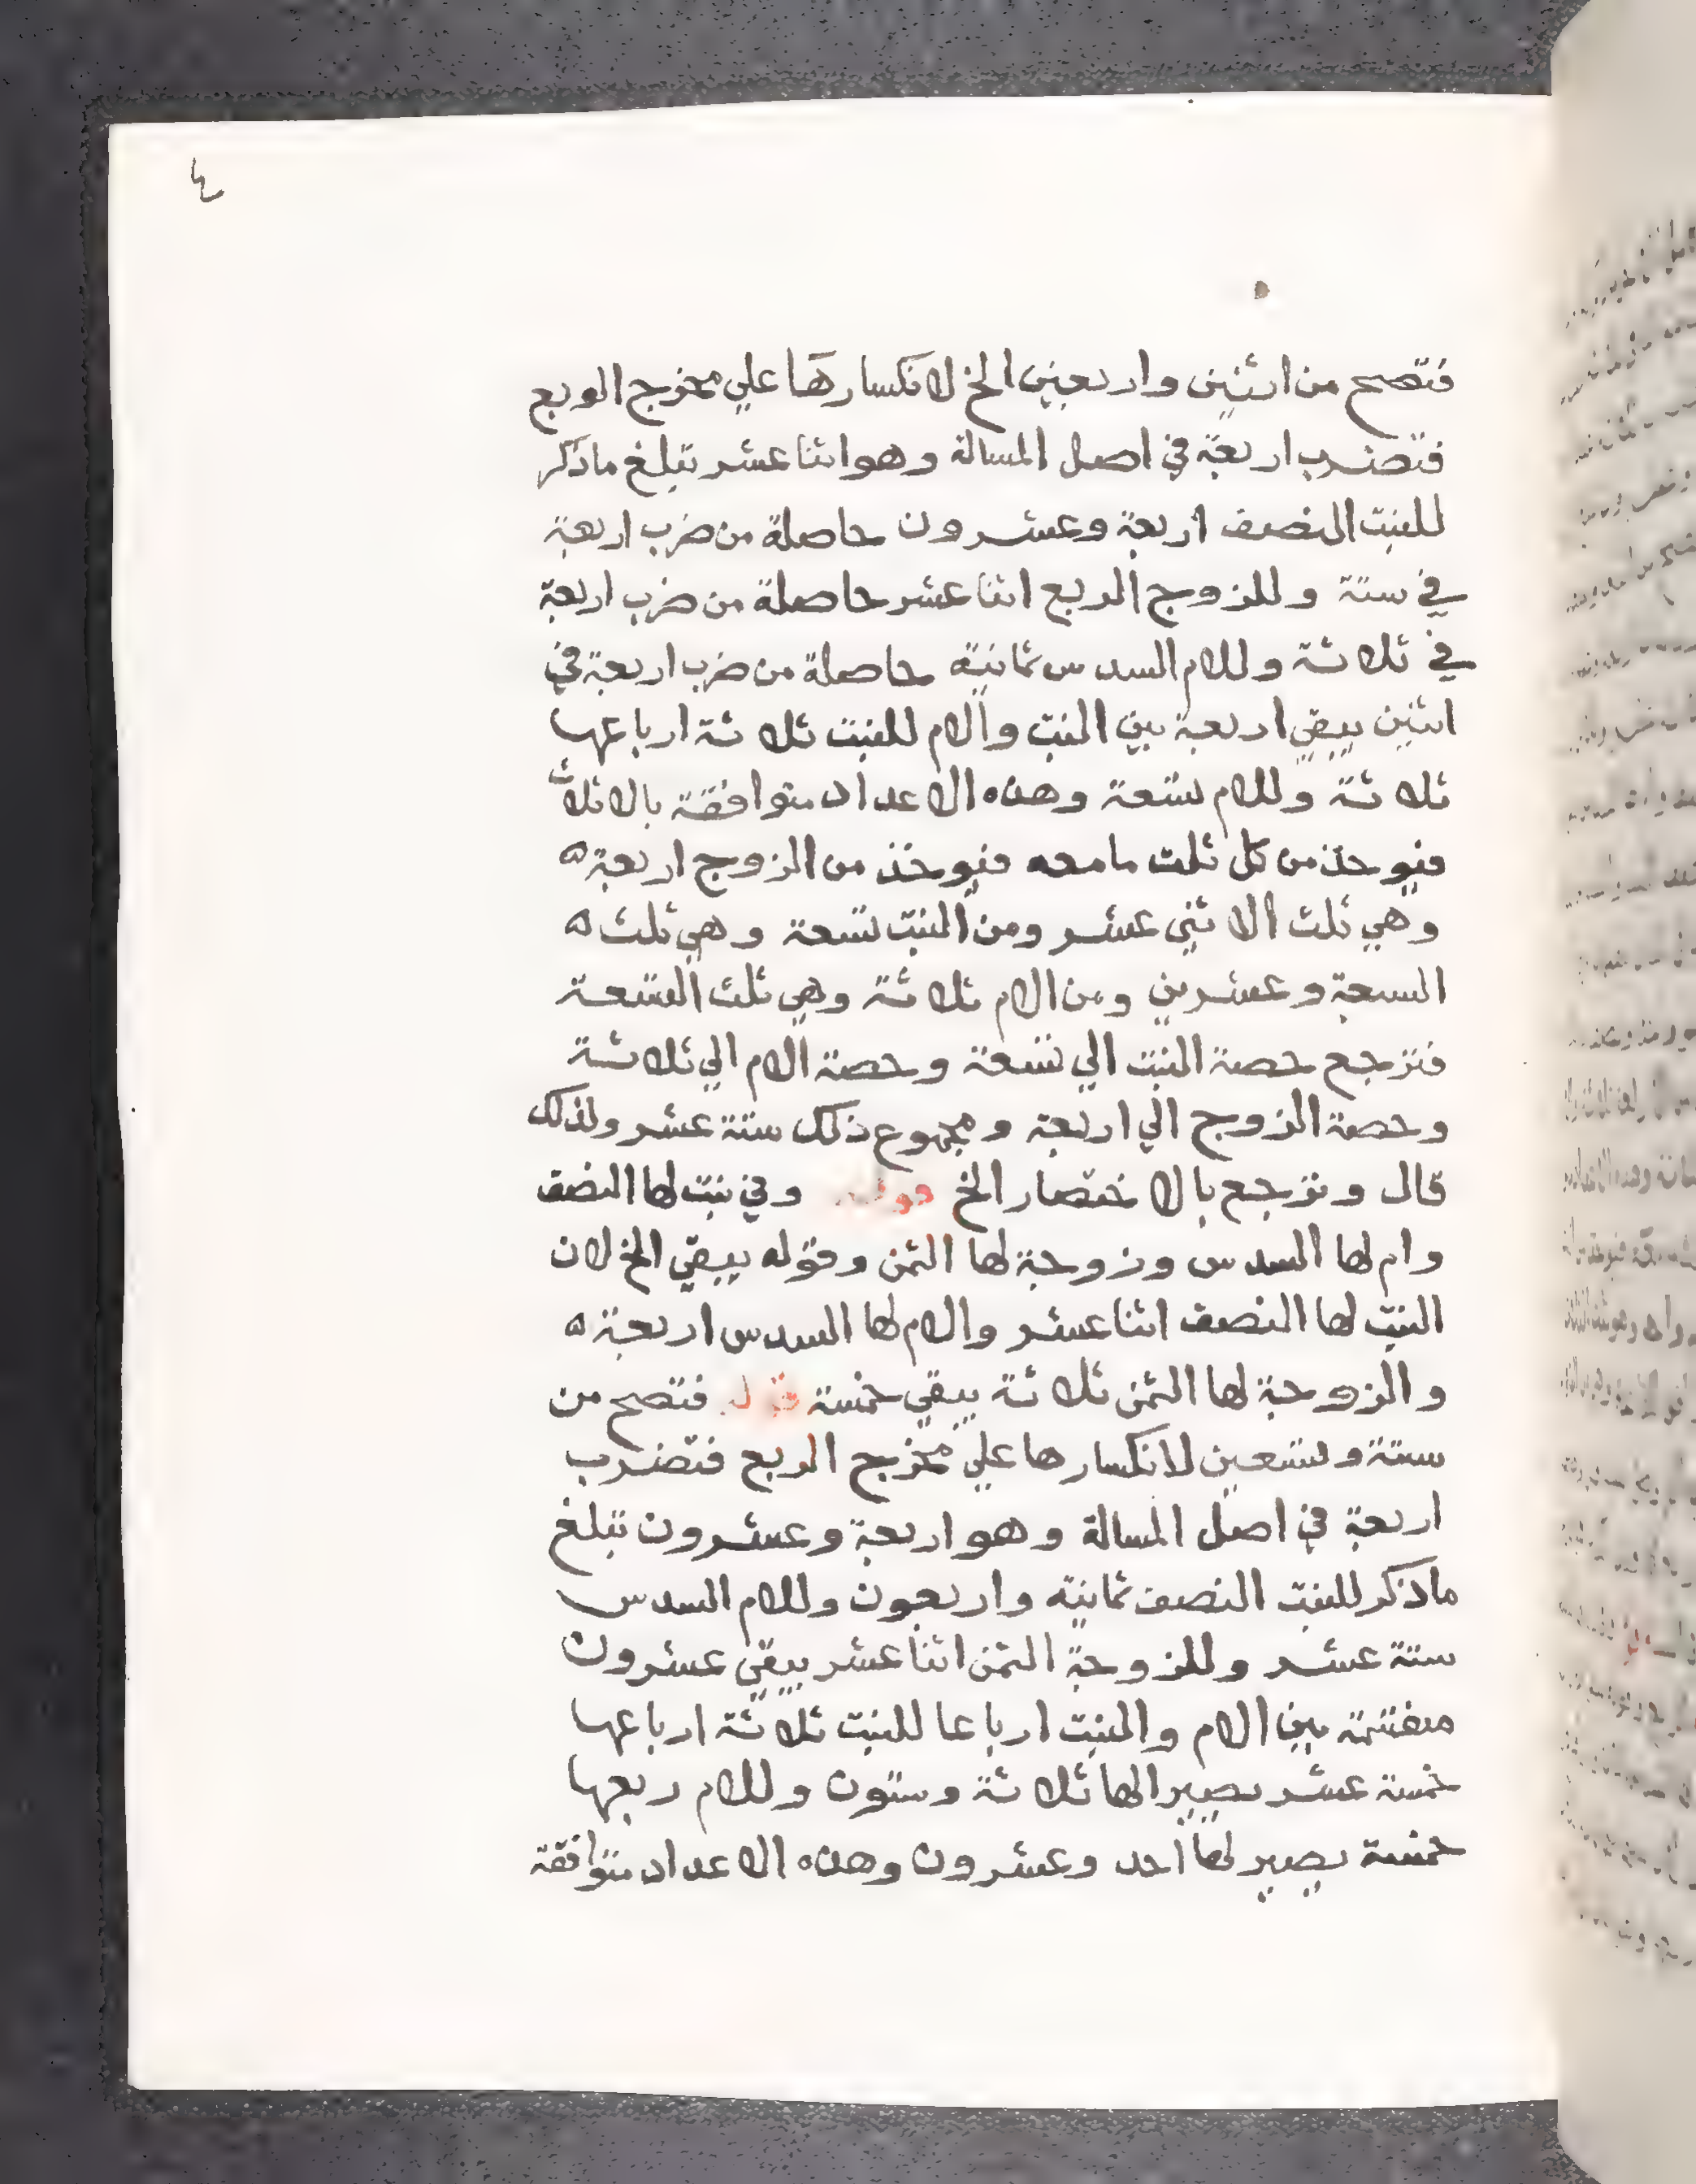 ٤
فتصح من اثنين واربعين الخ لانكسارها علي مخرج الربع
فتضرب اربعة في اصل المسالة وهو اثنا عشر تبلغ ماذكر
للبنت النصف اربعة وعشرون حاصلة من ضرب اربعة
في ستة وللزوج الربع اثنا عشر حاصلة من ضرب اربعة
في ثلاثة وللام السدس ثمانية حاصلة من ضرب اربعة في
اثنين يبقي اربعة بين البنت والام للبنت ثلاثة ارباعها
ثلاثة وللام تسعة وهذه الاعداد متوافقة بالاثلاث
فيوخذ من كل ثلث مامعه فيوخذ من الزوج اربعة ه
وهي ثلث الاثني عشر ومن البنت تسعة وهي ثلث ه
السبعة وعشرين ومن الام ثلاثة وهي ثلث التسعة
فترجع حصة البنت الي تسعة وحصة الام الي ثلاثة
وحصة الزوج الي اربعة ومجموع ذلك ستة عشر ولذلك
قال وترجع بالاختصار الخ قوله وفي بنت لها النصف
وام لها السدس وزوجة لها الثمن وقوله يبقي الخ لان
البنت لها النصف اثنا عشر والام لها السدس اربعة ه
والزوجة لها الثمن ثلاثة يبقي خمسة قوله فتصح من
ستة وتسعين لانكسارها علي مخرج الربع فتضرب
اربعة في اصل المسالة وهو اربعة وعشرون تبلغ
ماذكر للبنت النصف ثمانية واربعون وللام السدس
ستة عشر وللزوجة الثمن اثنا عشر يبقي عشرون
منقسمة بين الام والبنت ارباعا للبنت ثلاثة ارباعها
خمسة عشر يصير لها ثلاثة وستون وللام ربعها
خمسة يصير لها احد وعشرون وهذه الاعداد متوافقة